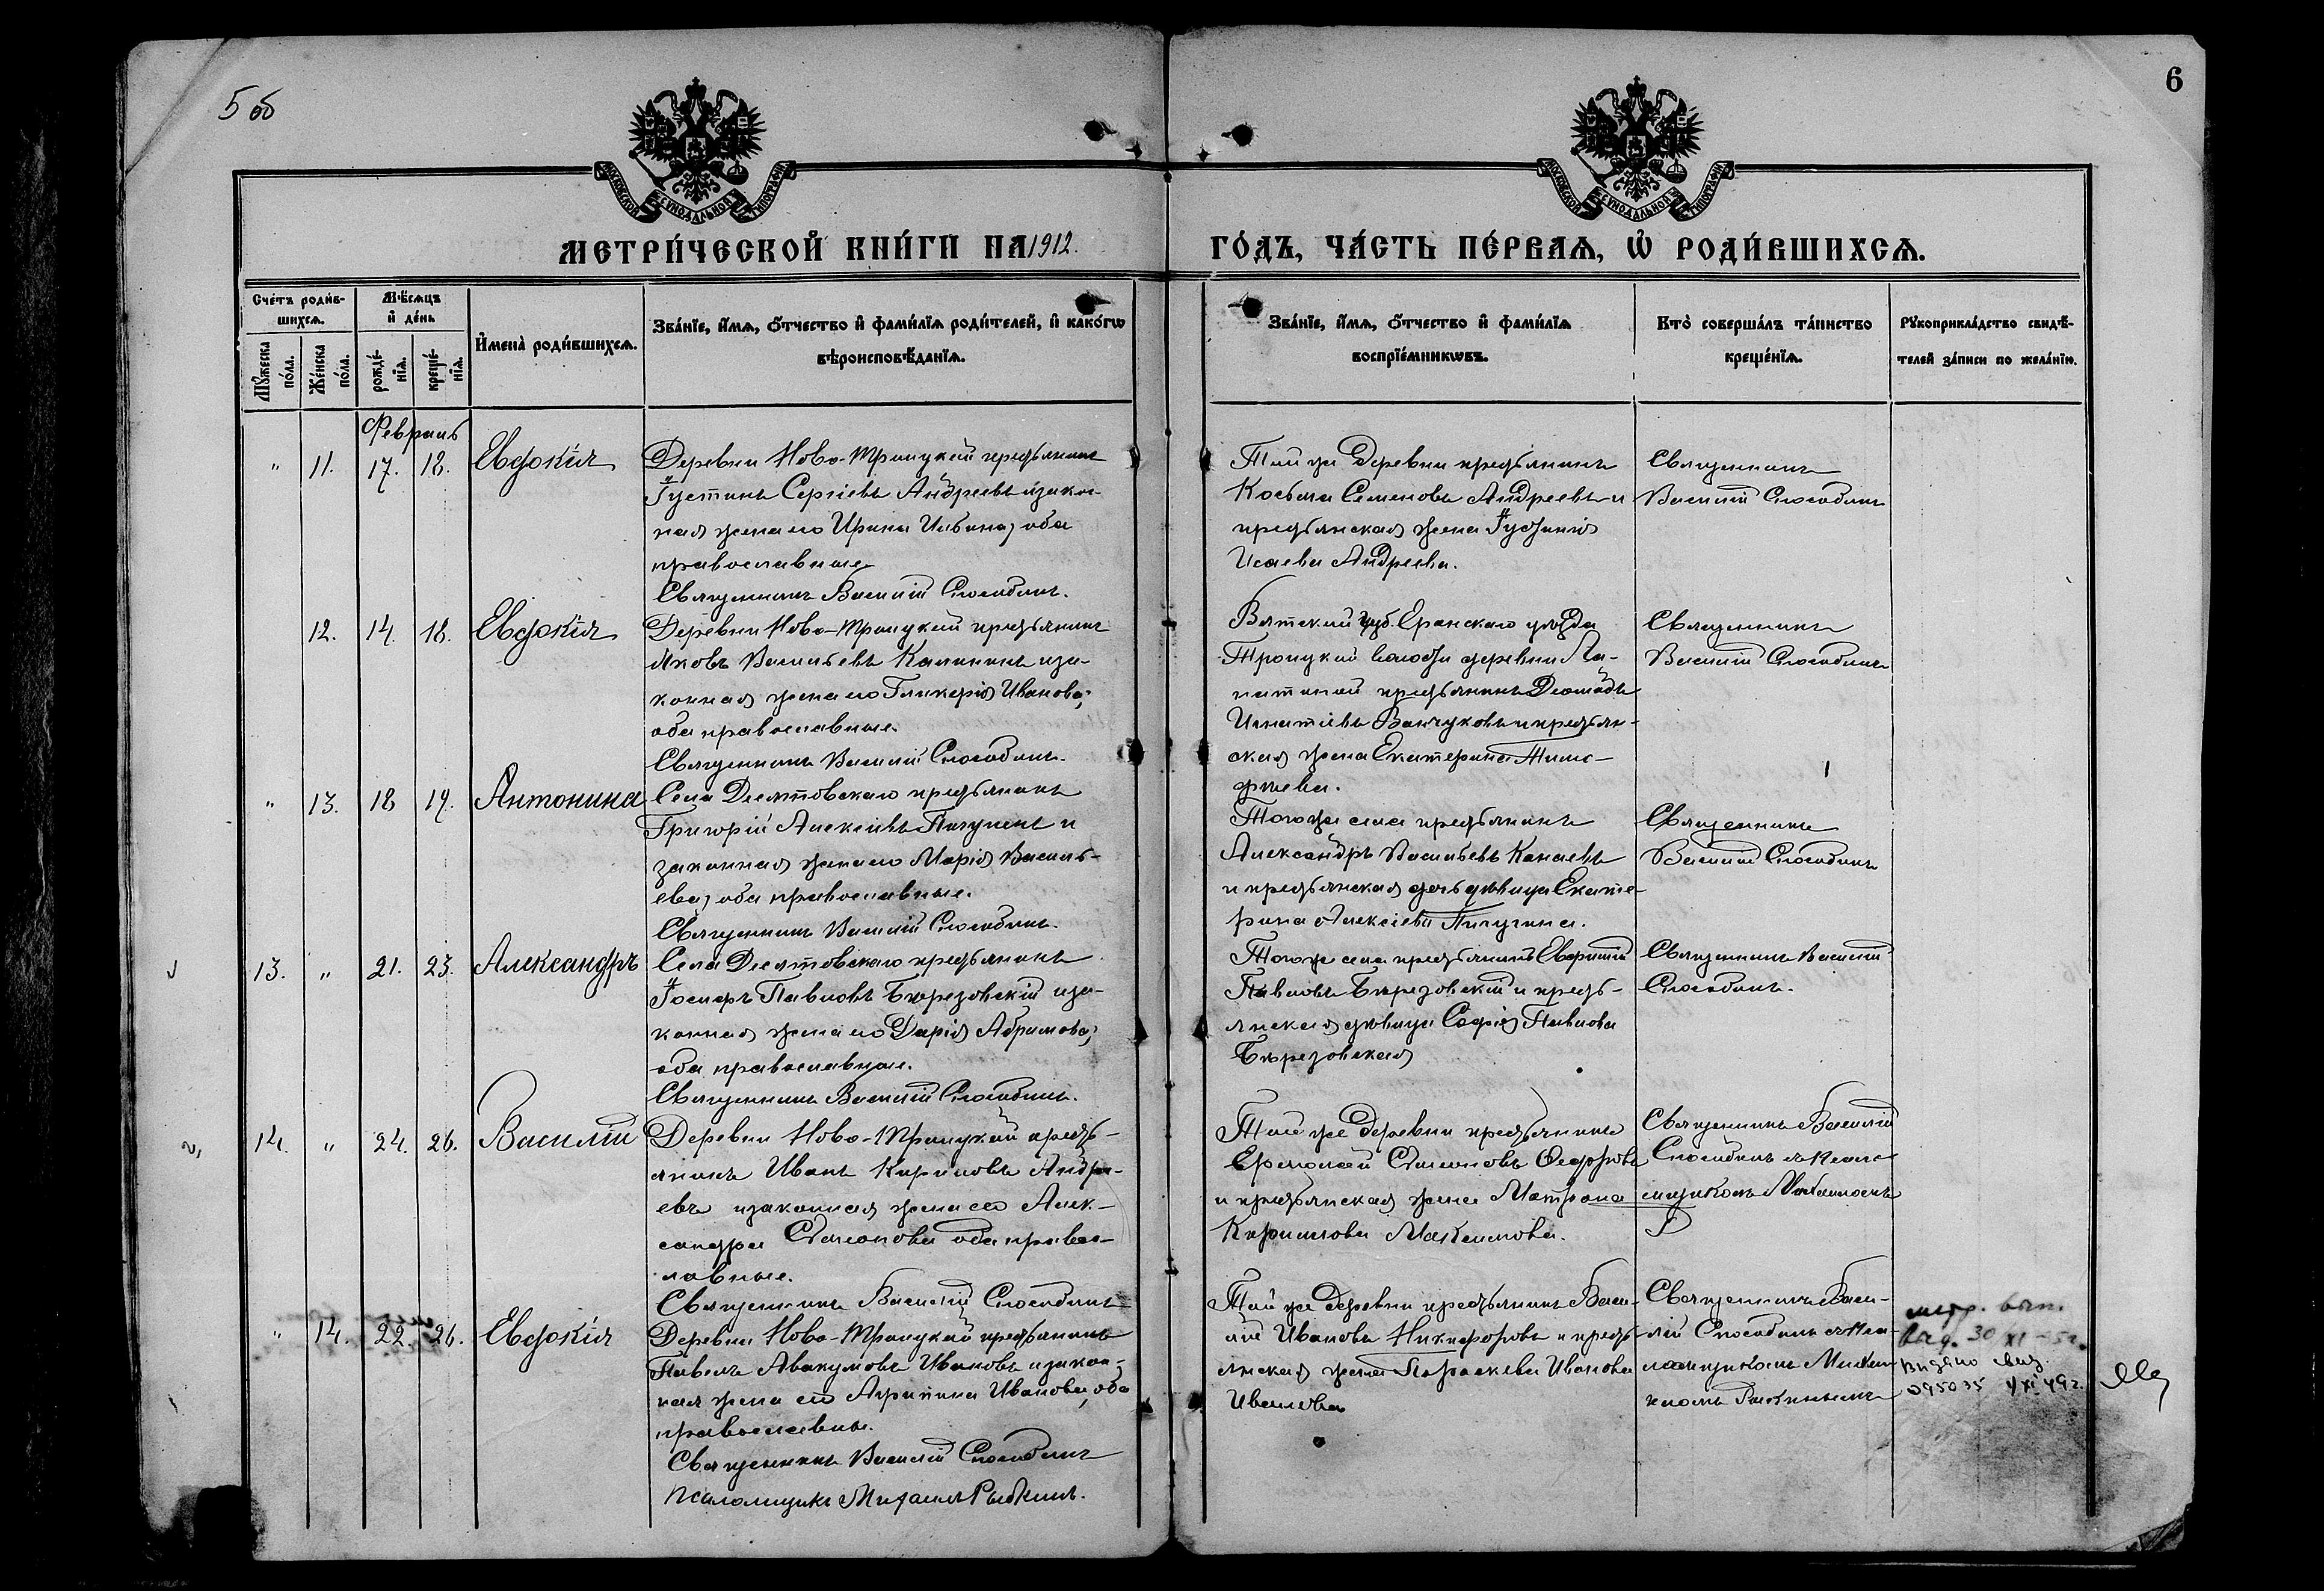 5 об
6
МОСКОВСКОЙ СѴНОДАЛЬНОЙ ТИПОГРАФІИ
МОСКОВСКОЙ СѴНОДАЛЬНОЙ ТИПОГРАФІИ
МЕТРИ́ЧЕСКОЙ КНИ́ГИ НА 1912.
ГО́ДЪ, ЧА́СТЬ ПЕ́РВАѦ, Ѡ҆ РОДИ́ВШИХСѦ.
Сче́тъ роди́в-
шихсѧ.
Мꙋ́жеска по́ла.
Же́нска по́ла.
Мѣ́сѧцъ
и҆ де́нь
рожде́-
нїѧ.
креще́-
нїѧ.
И҆мена̀ роди́вшихсѧ.
Зва́нїе, и҆́мѧ, ѻ҆́тчество и҆ фами́лїѧ роди́телей, и҆ како́гѡ
вѣроисповѣ́данїѧ.
Зва́нїе, и҆́мѧ, ѻ҆́тчество и҆ фами́лїѧ
воспрїе́мникѡвъ.
Кто̀ соверша́лъ та́инство
креще́нїѧ.
Рꙋкоприкла́дство свидѣ́-
телей за́писи по жела́нїю.
Февраль
" 11. 17. 18. Евдокія
Деревни Ново-Троицкой крестьянинъ
Іустинъ Сергіевъ Андреевъ и закон-
ная жена его Ирина Ильина, оба
православные.
Священникъ Василій Способинъ.
Той же деревни крестьянинъ
Косьма Семеновъ Андреевъ и
крестьянская жена Іустинія
Исаева Андреева.
Священникъ
Василій Способинъ
12. 14. 18. Евдокія
Деревни Ново-Троицкой крестьянинъ
Яковъ Васильевъ Калининъ и за-
конная жена его Гликерія Иванова,
оба православные.
Священникъ Василій Способинъ.
Вятской губ. Еранскаго уѣзда
Троицкой волости деревни
крестьянинъ
Игнатіевъ и крестьян-
ская жена Екатерина Тимо-
феева.
Священникъ
Василій Способинъ
" 13. 18 19. Антонина
Села крестьянинъ
Григорій Алексіевъ Пичугинъ и
законная жена его Марія Василь-
ева, оба православные.
Священникъ Василій Способинъ.
Того же села крестьянинъ
Александръ Васильевъ Канаевъ
и крестьянская дочь дѣвица Екате-
рина Алексіева Пичугина.
Священникъ
Василій Способинъ
13. " 21. 23. Александръ
Села крестьянинъ
Іосифъ Павловъ Березовскій и за-
конная жена его Дарія Абрамова,
оба православные.
Священникъ Василій Способинъ.
Того же села крестьянинъ
Павловъ Березовскій и кресть-
янская дѣвица Софія Павлова
Березовская
Священникъ Василій
Способинъ.
14. " 24. 26. Василій
Деревни Ново-Троицкой кресть-
янинъ Иванъ Кириловъ Андре-
евъ и законная жена его Алек-
сандра Симеонова оба право-
лавные.
Священникъ Василій Способинъ
Той же деревни крестьянинъ
Ермолай Симеоновъ Федоровъ
и крестьянская жена Матрона
Кириллова Максимова.
Священникъ Василій
Способинъ съ псало-
мщикомъ
" 14. 22. 26. Евдокія
Деревни Ново-Троицкой крестьянинъ
Павелъ Авакумовъ Ивановъ и закон-
ная жена его Агрипина Иванова, оба
православные.
Священникъ Василій Способинъ
Псаломщикъ Михаилъ Рыбкинъ.
Той же деревни крестьянинъ Васи-
лій Ивановъ Никифоровъ и кресть-
янская жена Параскева Иванова
Иванова
Священникъ Васи-
лій Способинъ съ пса-
ломщикомъ Миха-
иломъ Рыбкинымъ
метр. вып.
выд. 30/XI-51.
Выдано свид.
095035 4/XI 49г.